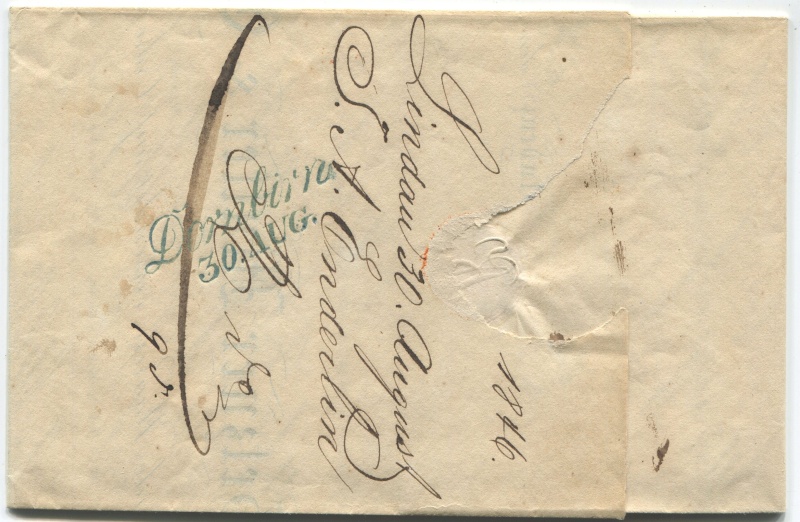 Lindau 30. August 1846.
J. A. Enderlin
Dornbirn
30. AUG.